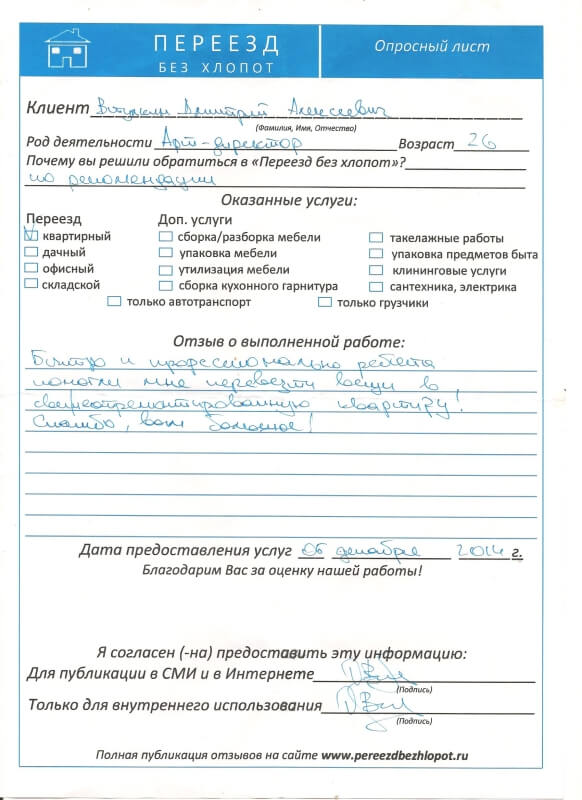 ПЕРЕЕЗД
БЕЗ ХЛОПОТ
Опросный лист
Клиент Дмитрий Алексеевич
(Фамилия, Имя, Отчество)
Род деятельности Арт-директор Возраст 26
Почему вы решили обратиться в «Переезд без хлопот»?
по рекомендации
Оказанные услуги:
Переезд Доп. услуги
квартирный сборка/разборка мебели такелажные работы
дачный упаковка мебели упаковка предметов быта
офисный утилизация мебели клининговые услуги
складской сборка кухонного гарнитура сантехника, электрика
только автотранспорт только грузчики
Отзыв о выполненной работе:
Быстро и профессионально ребята
помогли мне перевезти вещи в
свежеотремонтированную квартиру!
Спасибо, вам большое!
Дата предоставления услуг 06 декабря 2014 г.
Благодарим Вас за оценку нашей работы!
Я согласен (-на) предоставить эту информацию:
Для публикации в СМИ и в Интернете
(Подпись)
Только для внутреннего использования
(Подпись)
Полная публикация отзывов на сайте www.pereezdbezhlopot.ru